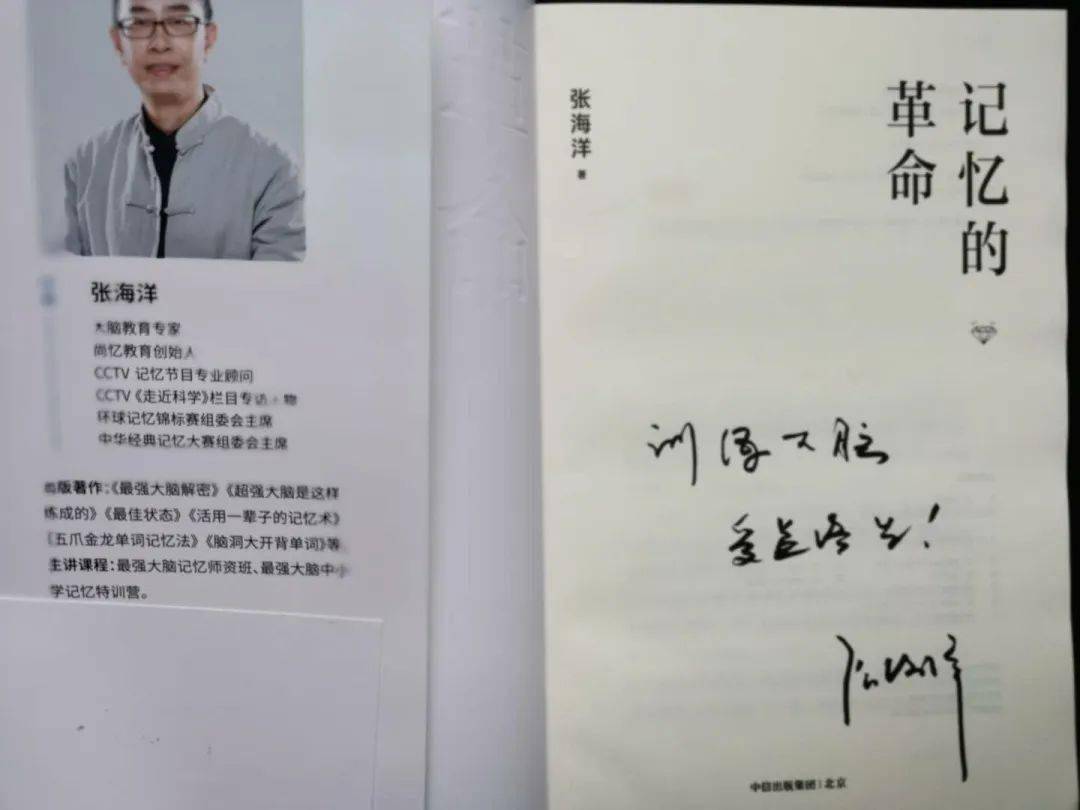 张海洋
大脑教育专家
尚忆教育创始人
CCTV 记忆节目专业顾问
CCTV《走近科学》栏目专访人物
环球记忆锦标赛组委会主席
中华经典记忆大赛组委会主席
出版著作:《最强大脑解密》《超强大脑是这样
练成的》《最佳状态》《活用一辈子的记忆术》
《五爪金龙单词记忆法》《脑洞大开背单词》等。
主讲课程:最强大脑记忆师资班、最强大脑中小
学记忆特训营。
记忆的
革命
张海洋 著
训练大脑
受益终生!
张海洋
中信出版集团 | 北京